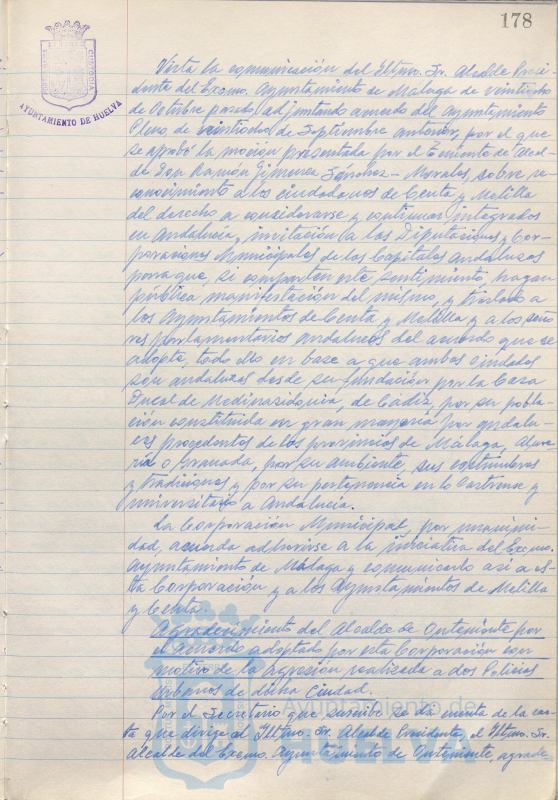 178
AYUNTAMIENTO DE HUELVA
Vista la comunicación del Iltmo. Sr. Alcalde Presi-
dente del Excmo. Ayuntamiento de Málaga de veintiocho
de Octubre pasado adjuntando acuerdo del Ayuntamiento
Pleno de veintiocho de Septiembre anterior, por el que
se aprobó la moción presentada por el Teniente de Alcal-
de Don Ramón Gimenez Sanchez-Morales, sobre re-
conocimiento a los ciudadanos de Ceuta y Melilla
del derecho a considerarse y continuar integrados
en Andalucía, invitación a las Diputaciones y Cor-
poraciones Municipales de las Capitales Andaluzas
para que, si comparten este sentimiento, hagan
pública manifestación del mismo, y traslado a
los Ayuntamientos de Ceuta y Melilla y a los seño-
res parlamentarios andaluces del acuerdo que se
adopte, todo ello en base a que ambas ciudades
son andaluzas desde su fundación por la Casa
Ducal de Medinasidonia, de Cádiz, por su pobla-
ción constituida en gran mayoría por andalu-
ces procedentes de las provincias de Málaga, Alme-
ría o Granada, por su ambiente, sus costumbres
y tradiciones y por su pertenencia en lo Castrense y
universitario a Andalucía.
La Corporación Municipal, por unanimi-
dad, acuerda adherirse a la iniciativa del Excmo.
Ayuntamiento de Málaga y comunicarlo así a es-
ta Corporación y a los Ayuntamientos de Melilla
y Ceuta.
Agradecimiento del Alcalde de Onteniente por
el acuerdo adoptado por esta Corporación con
motivo de la agresión realizada a dos Policias
Urbanos de dicha Ciudad.
Por el Secretario que suscribe se da cuenta de la car-
ta que dirige al Iltmo. Sr. Alcalde Presidente, el Iltmo. Sr.
Alcalde del Excmo. Ayuntamiento de Onteniente, agrade-
Ayuntamiento de
HUELVA